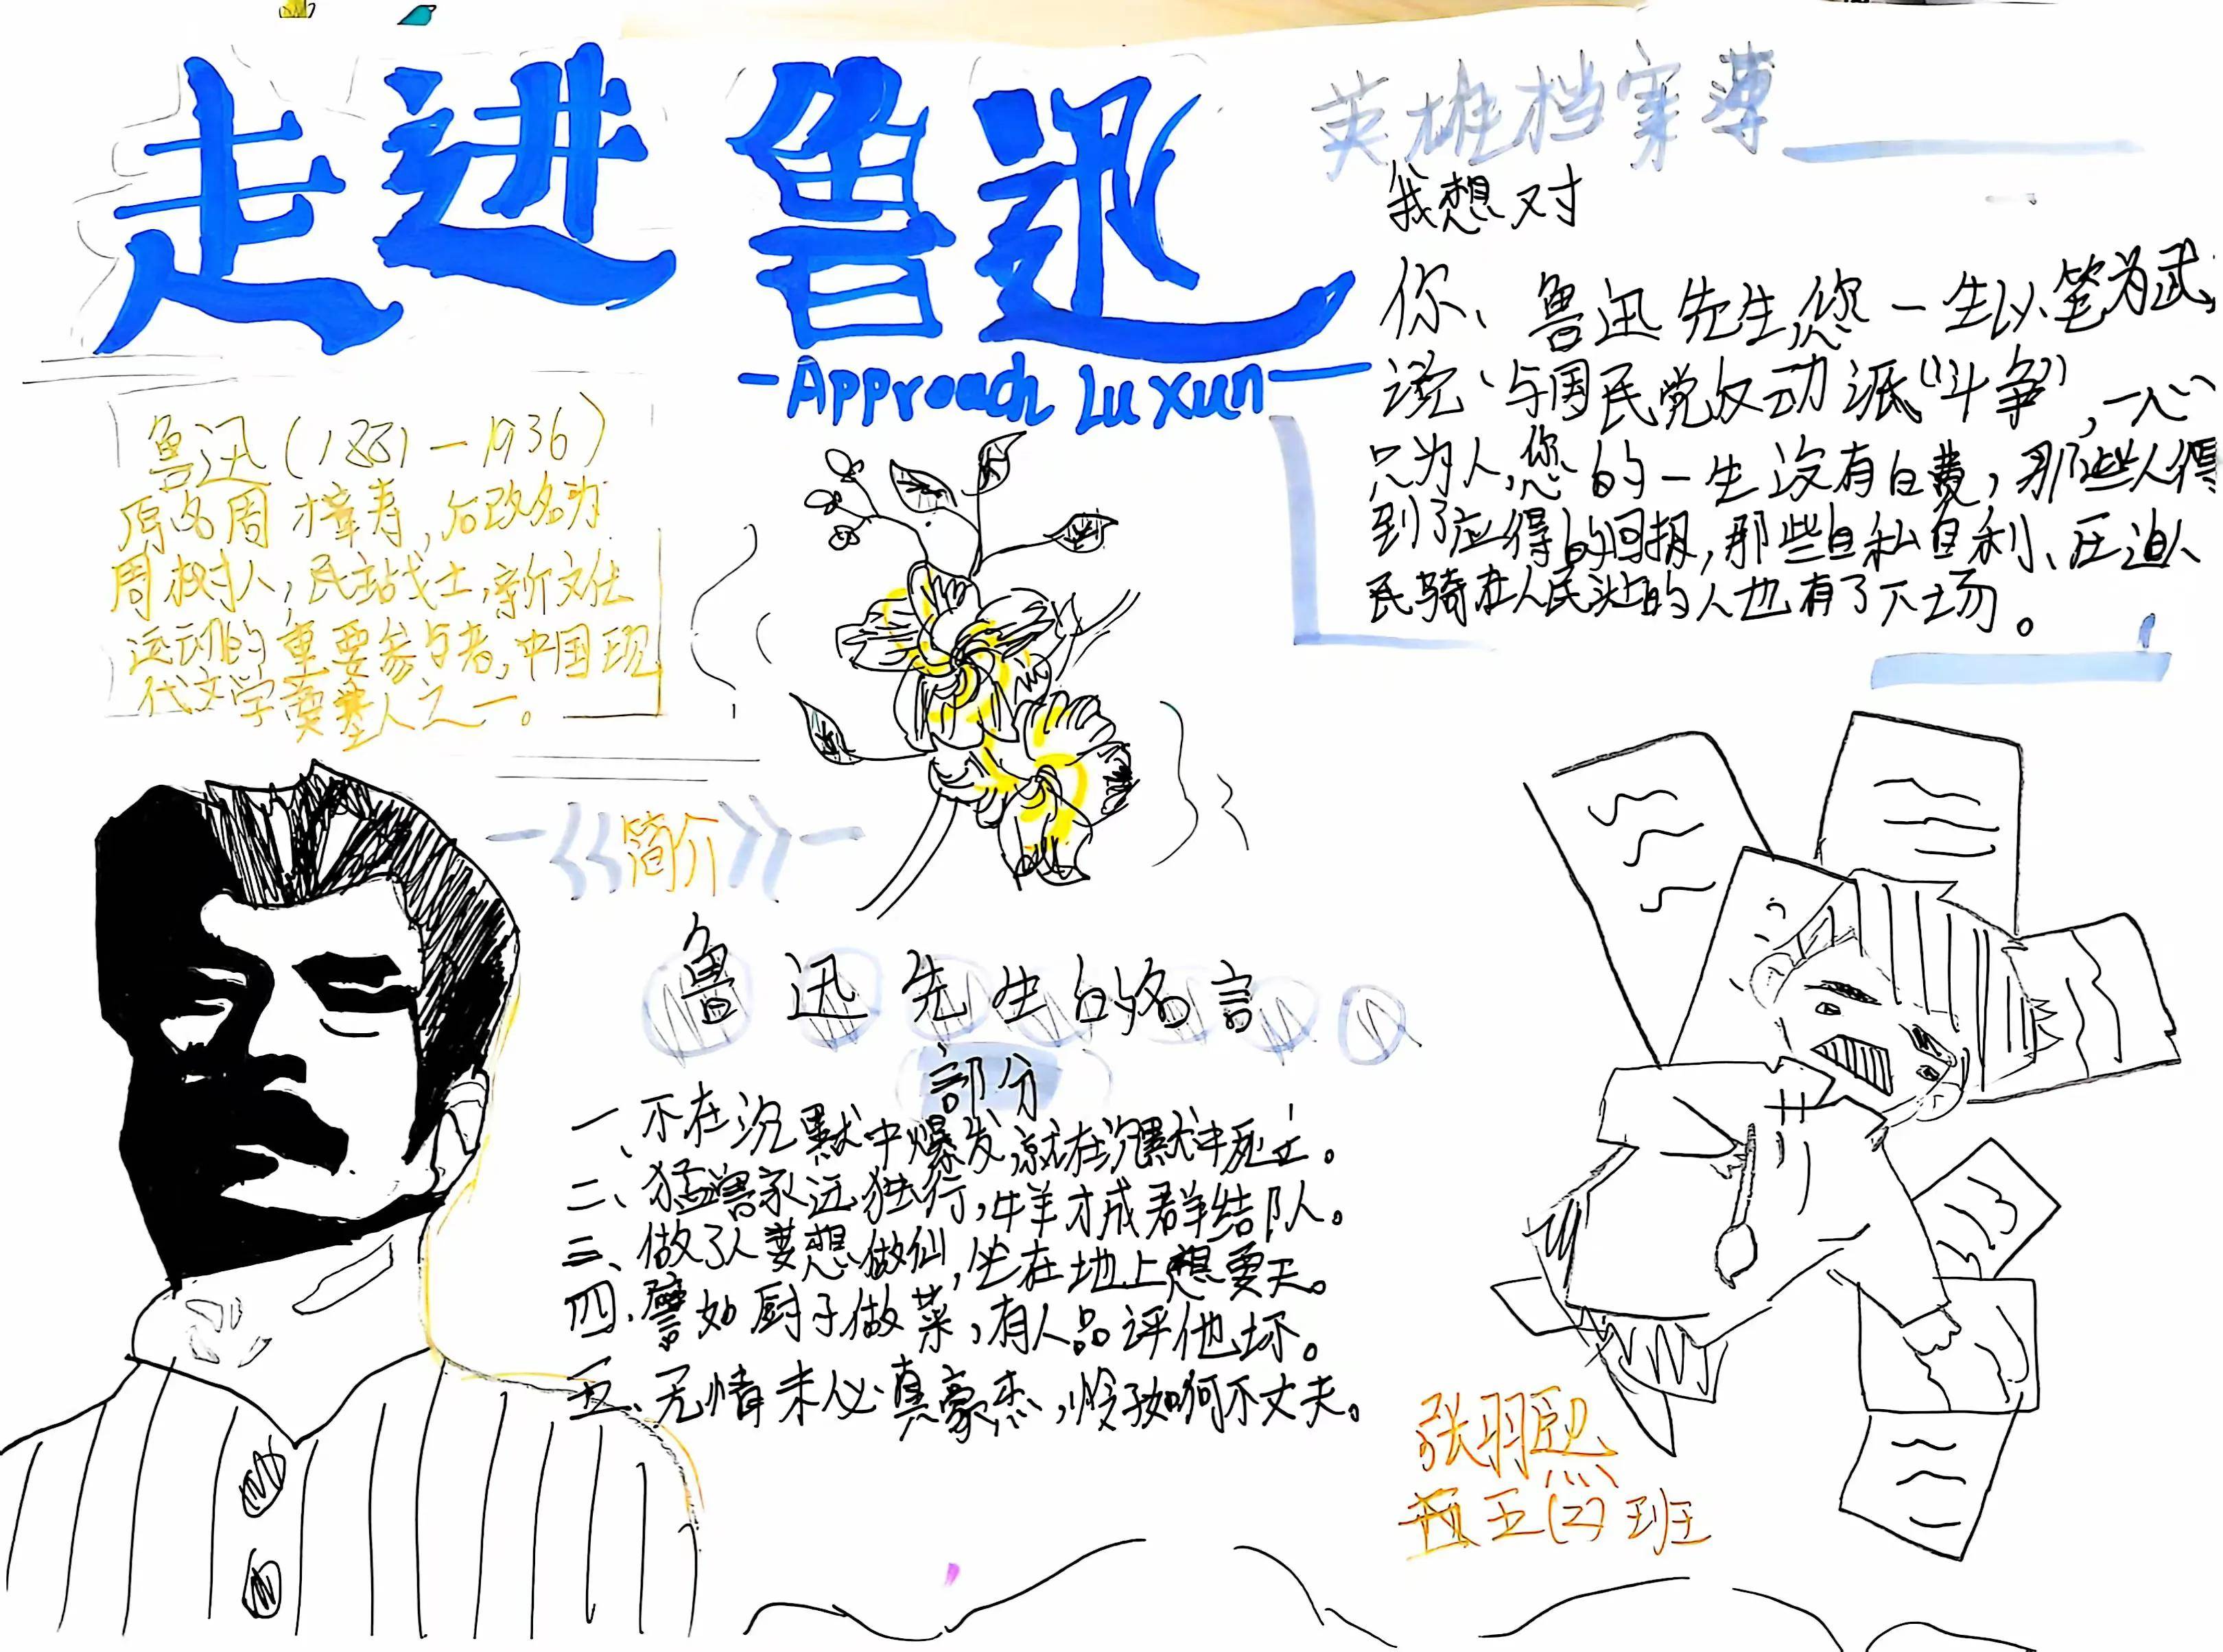 走进鲁迅
-Approach Lu xun-
鲁迅(1881-1936)
原名周樟寿,后改名为
周树人,民主战士,新文化
运动的重要参与者,中国现
代文学奠基人之一。
《简介》
英雄档案薄
我想对
你、鲁迅先生您一生以笔为武
说、与国民党反动派“斗争”,一心
只为人,您的一生没有白费,那些人得
到了应得的回报,那些自私自利、压迫人
民骑在人民头上的人也有了下场。
鲁迅先生的名言
部分
一、不在沉默中爆发,就在沉默中死亡。
二、猛兽永远独行,牛羊才成群结队。
三、做了人要想做仙,坐在地上想要天。
四、譬如厨子做菜,有人品评他坏。
五、无情未必真豪杰,怜子如何不丈夫。
张羽熙
五(2)班